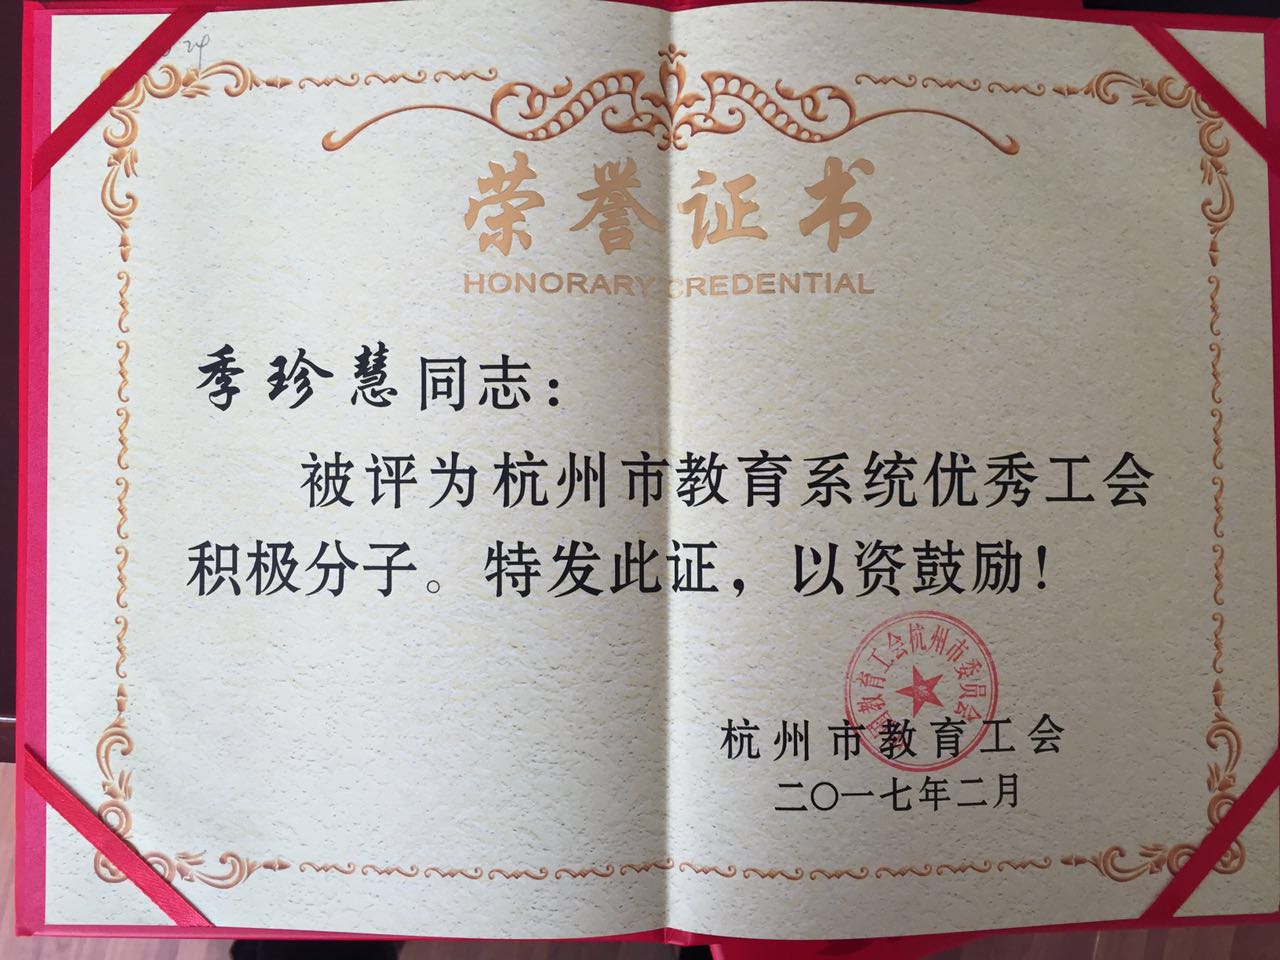 荣誉证书
HONORARY CREDENTIAL
季珍慧同志：
被评为杭州市教育系统优秀工会
积极分子。特发此证，以资鼓励！
教育工会杭州市委员会
杭州市教育工会
二〇一七年二月